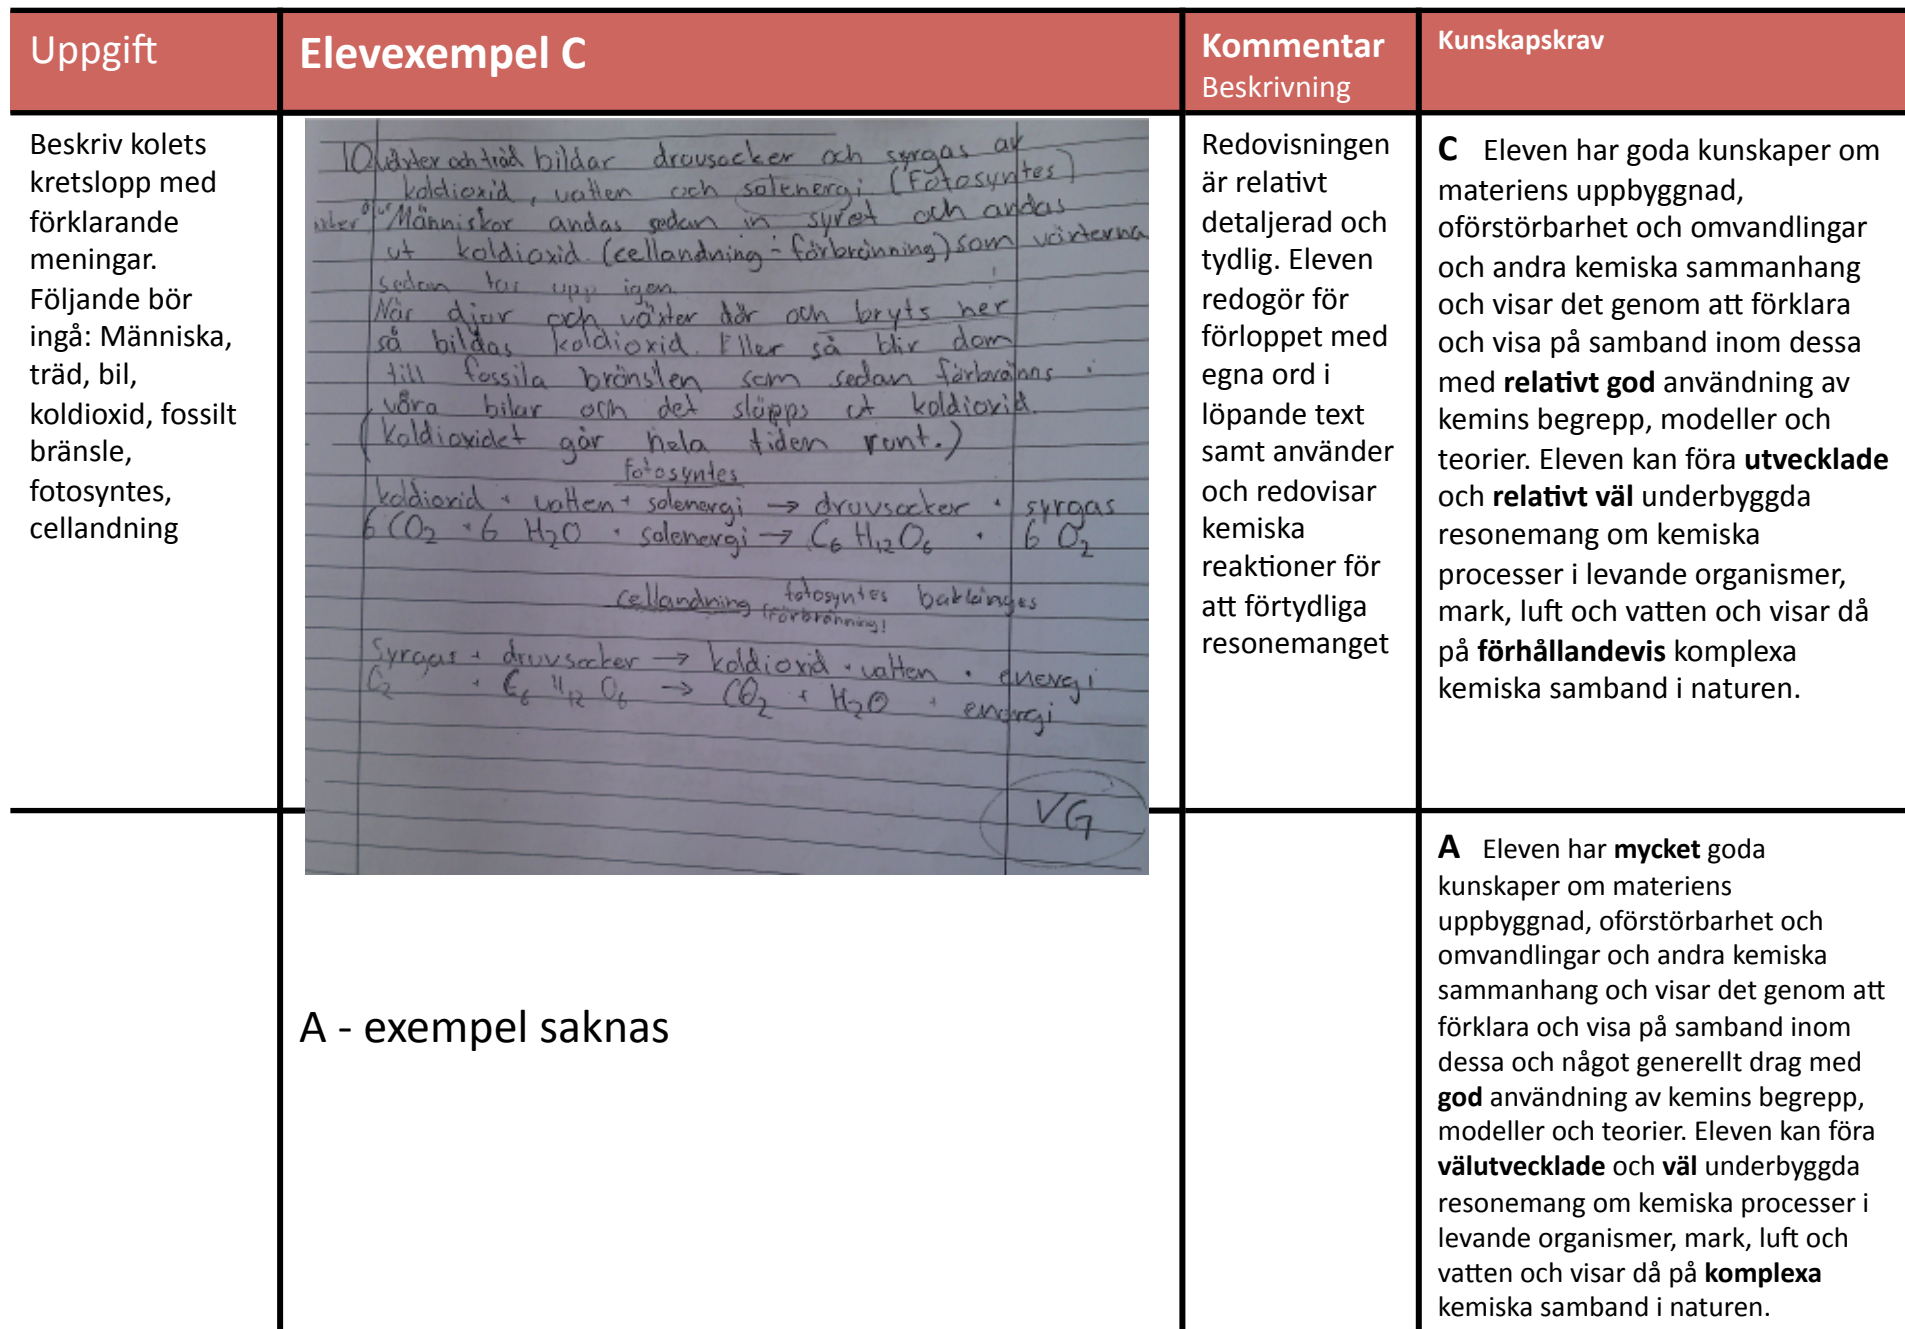 Uppgift
Elevexempel C
Kommentar
Beskrivning
Kunskapskrav
Beskriv kolets
kretslopp med
förklarande
meningar.
Följande bör
ingå: Människa,
träd, bil,
koldioxid, fossilt
bränsle,
fotosyntes,
cellandning
10. växter och träd bildar druvsocker och syrgas av
koldioxid, vatten och solenergi (Fotosyntes)
Människor andas sedan in syret och andas
ut koldioxid. (cellandning - förbränning) som växterna
sedan tar upp igen
När djur och växter dör och bryts ner
så bildas koldioxid. Eller så blir dom
till fossila bränslen som sedan förbränns i
våra bilar och det släpps ut koldioxid.
(koldioxidet går hela tiden runt.)
fotosyntes
koldioxid + vatten + solenergi → druvsocker + syrgas
6 CO2 + 6 H2O + solenergi → C6 H12 O6 + 6 O2
cellandning fotosyntes baklänges
(förbränning)
Syrgas + druvsocker → koldioxid + vatten + energi
O2 + C6 H12 O6 → CO2 + H2O + energi
VG
Redovisningen
är relativt
detaljerad och
tydlig. Eleven
redogör för
förloppet med
egna ord i
löpande text
samt använder
och redovisar
kemiska
reaktioner för
att förtydliga
resonemanget
C Eleven har goda kunskaper om
materiens uppbyggnad,
oförstörbarhet och omvandlingar
och andra kemiska sammanhang
och visar det genom att förklara
och visa på samband inom dessa
med relativt god användning av
kemins begrepp, modeller och
teorier. Eleven kan föra utvecklade
och relativt väl underbyggda
resonemang om kemiska
processer i levande organismer,
mark, luft och vatten och visar då
på förhållandevis komplexa
kemiska samband i naturen.
A - exempel saknas
A Eleven har mycket goda
kunskaper om materiens
uppbyggnad, oförstörbarhet och
omvandlingar och andra kemiska
sammanhang och visar det genom att
förklara och visa på samband inom
dessa och något generellt drag med
god användning av kemins begrepp,
modeller och teorier. Eleven kan föra
välutvecklade och väl underbyggda
resonemang om kemiska processer i
levande organismer, mark, luft och
vatten och visar då på komplexa
kemiska samband i naturen.